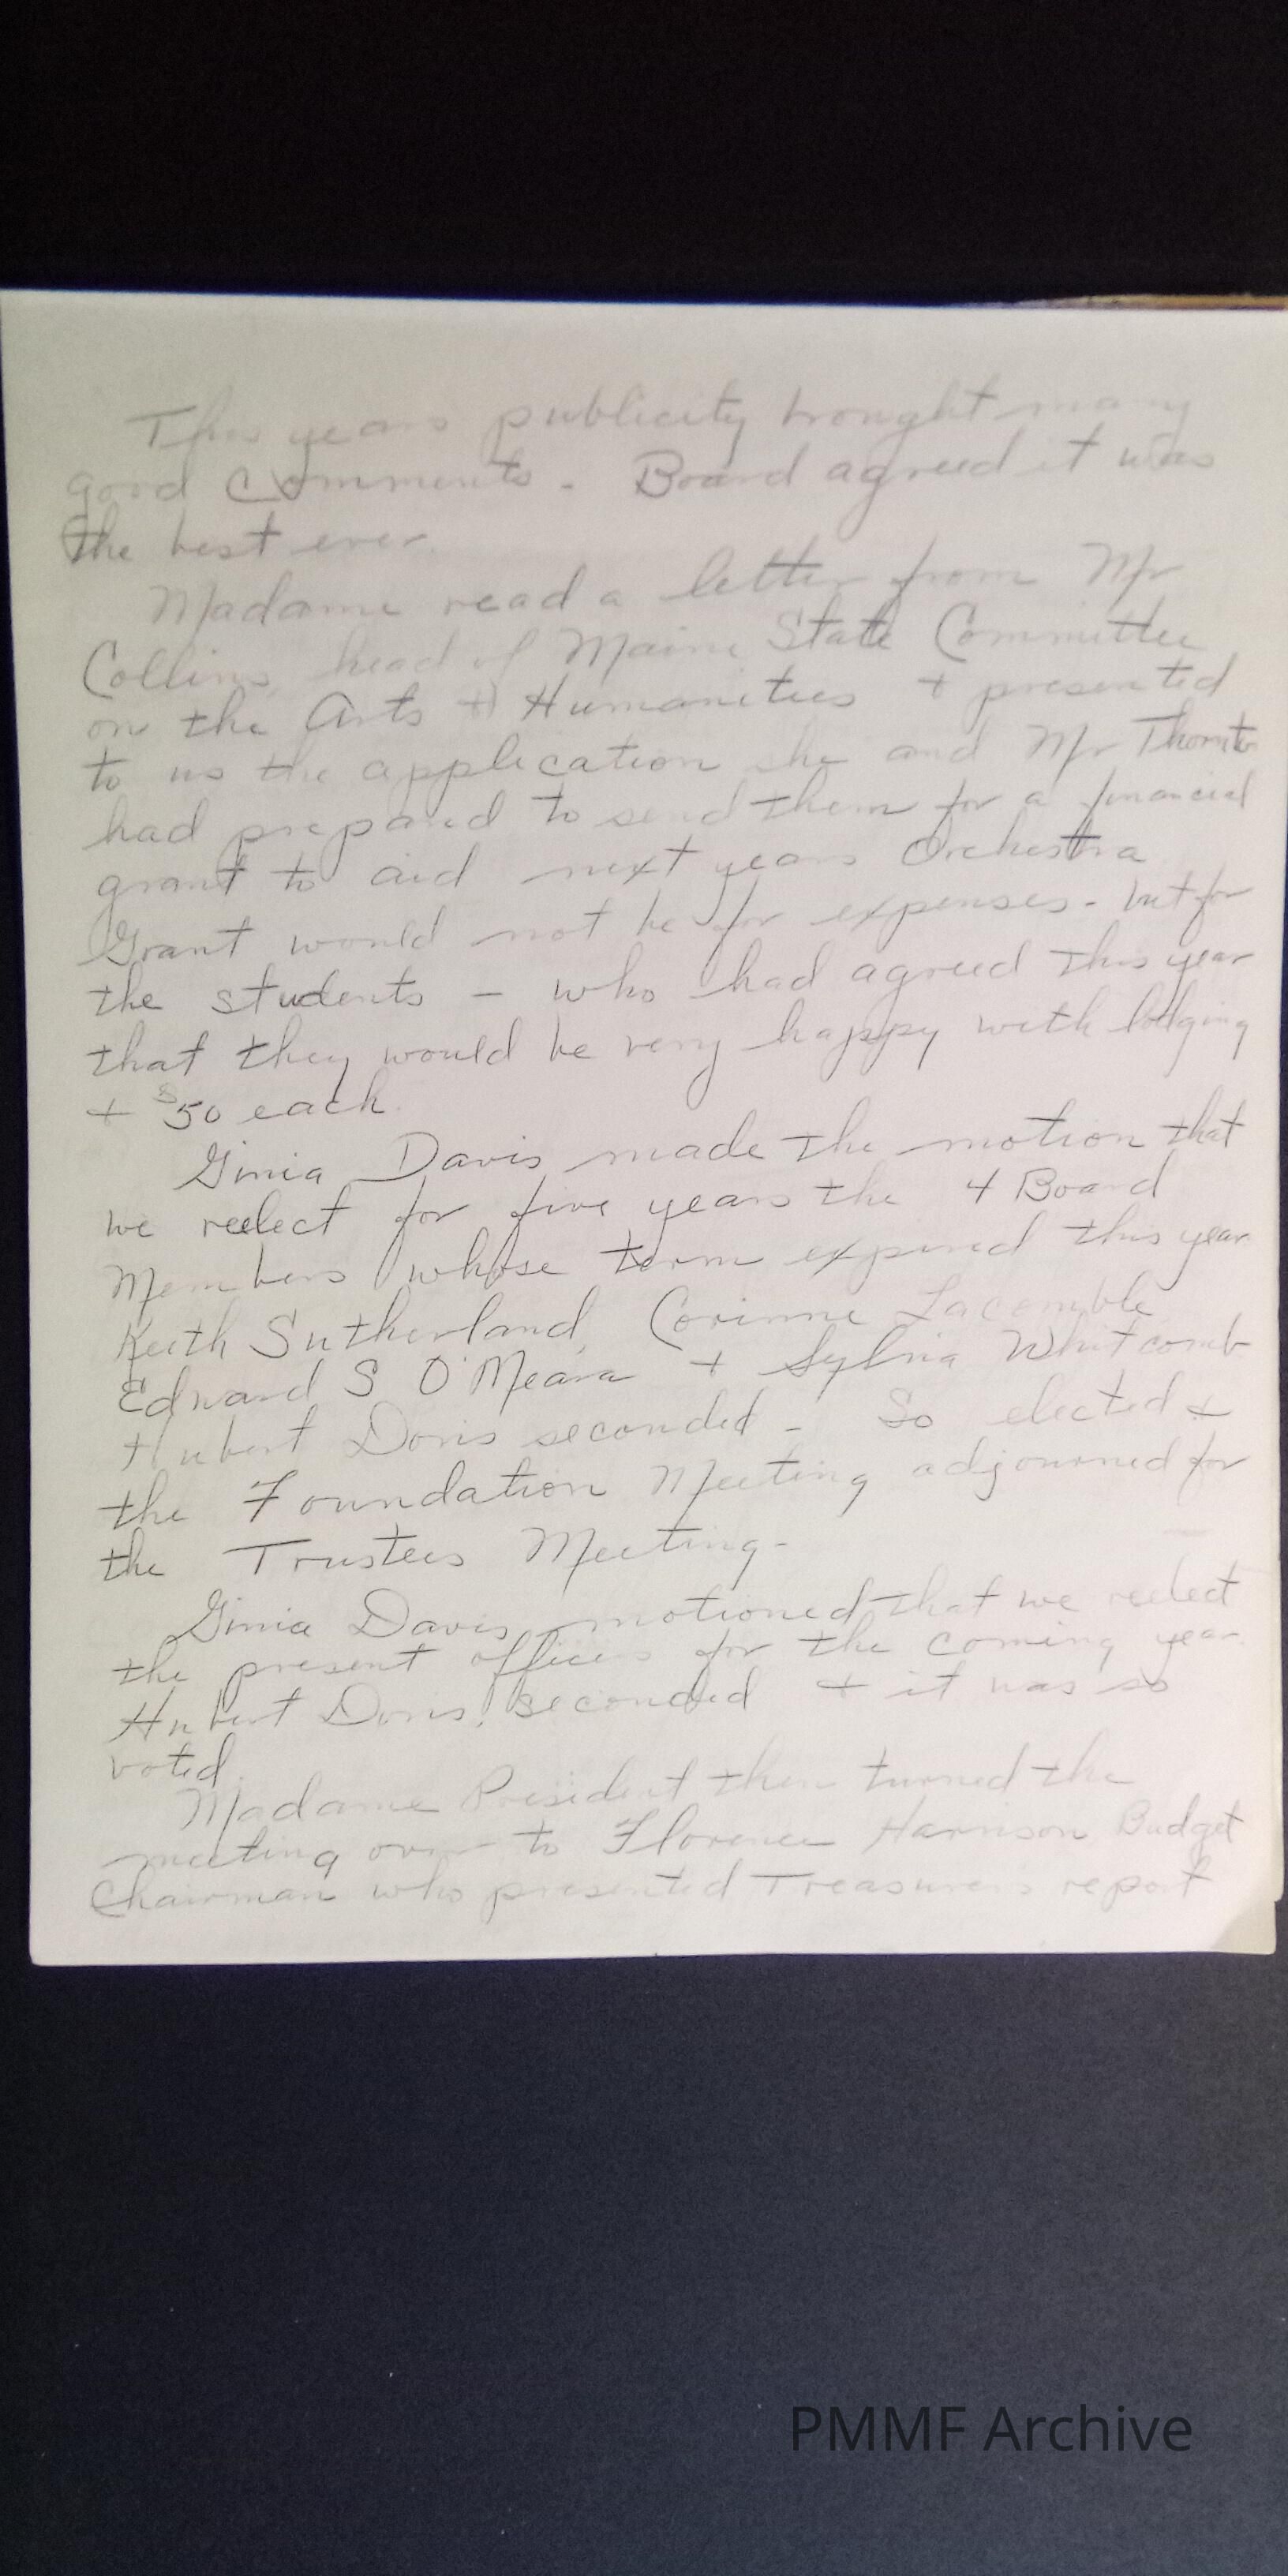 This years publicity brought many
good Comments - Board agreed it was
the best ever.
Madame read a letter from Mr
Collins, head of Maine State Committee
on the Arts + Humanities + presented
to us the application she and Mr Thornton
had prepared to send them for a financial
grant to aid next years Orchestra
Grant would not be for expenses - but for
the students - who had agreed this year
that they would be very happy with lodging
+ $50 each.
Ginia Davis made the motion that
we reelect for five years the 4 Board
Members whose term expired this year
Keith Sutherland, Corinne Lacomble
Edward S O'Meara + Sylvia Whitcomb
Hubert Doris seconded - So elected +
the Foundation Meeting adjourned for
the Trustees Meeting -
Ginia Davis motioned that we reelect
the present officers for the coming year.
Hubert Doris seconded + it was so
voted.
Madame President then turned the
meeting over to Florence Harrison Budget
Chairman who presented Treasurers report
PMMF Archive